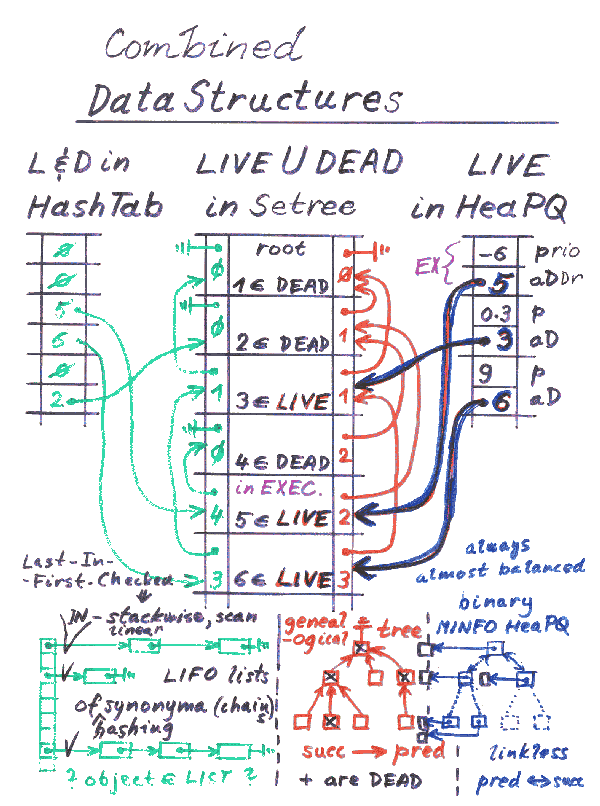 Combined
Data Structures
L&D in
HashTab
LIVE U DEAD
in Setree
LIVE
in HeaPQ
Ø
Ø
5
6
Ø
2
root
Ø
1 ∈ DEAD
Ø
Ø
2 ∈ DEAD
1
1
3 ∈ LIVE
1
Ø
4 ∈ DEAD
2
in EXEC.
4
5 ∈ LIVE
2
3
6 ∈ LIVE
3
EX{
-6
prio
5
aDDr
0.3
p
3
aD
9
p
6
aD
Last-In-
-First-Checked
IN-stackwise, scan
linear
LIFO lists
of synonyma (chains)
hashing
? object ∈ LIST ?
geneal
-ogical
tree
succ → pred
+ are DEAD
always
almost balanced
binary
MINFO HeaPQ
linkless
pred ↔ succ